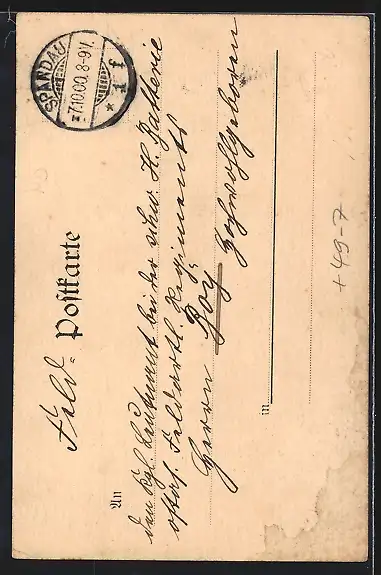 SPANDAU
7.10.00. 8-9V.
* 1 f
Feld-
Postkarte
An
den Kgl. Leutenant bei der schw. H. Batterie
ostas. Feldartl. Regiments
Herrn Boy
Hochwohlgeboren
in
+ 49-7